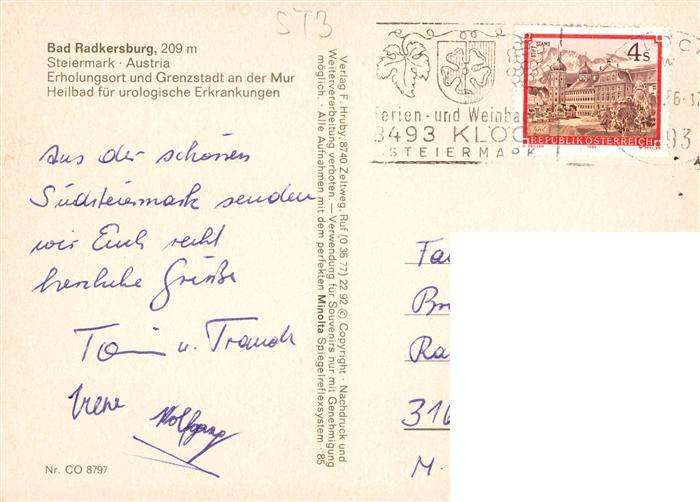 ST3
Bad Radkersburg, 209 m
Steiermark · Austria
Erholungsort und Grenzstadt an der Mur
Heilbad für urologische Erkrankungen
Aus der schönen
Südsteiermark senden
wir Euch recht
herzliche Grüße
Toni u. Traude
Irene Wolfgang
Nr. CO 8797
Verlag F. Hruby, 8740 Zeltweg, Ruf (0 35 77) 22 92 © Copyright · Nachdruck und
Weiterverarbeitung verboten. — Verwendung für Souvenirs nur mit Genehmigung
möglich · Alle Aufnahmen mit dem perfekten Minolta Spiegelreflexsystem · 85
erien - und Weinba
8493 KLÖC
STEIERMARK
STIFT STAMS
4 S
REPUBLIK ÖSTERREICH
86-17
93
Fa
Br
Ra
316
M.